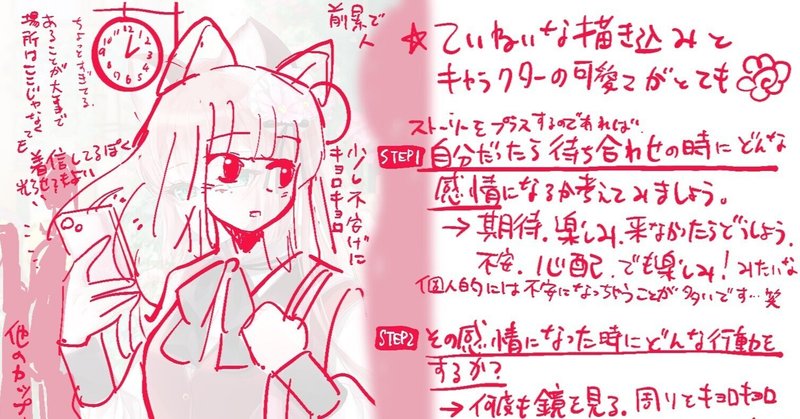 前景で
人
ちょっとすぎてる
あることが大事で
場所はここじゃなくても
着信してるぽく
光らせてもよい
少し不安げに
キョロキョロ
他のカップ
☆ていねいな描き込みと
キャラクターの可愛さがとても
ストーリーをプラスするのであれば、
STEP1 自分だったら待ち合わせの時にどんな
感情になるか考えてみましょう。
→期待、楽しみ、来なかったらどうしよう、
不安、心配、でも楽しみ!みたいな
個人的には不安になっちゃうことが多いです…笑
STEP2 その感情になった時にどんな行動を
するか?
→何度も鏡を見る、周りをキョロキョロ
12
1
2
3
4
5
6
7
8
9
10
11